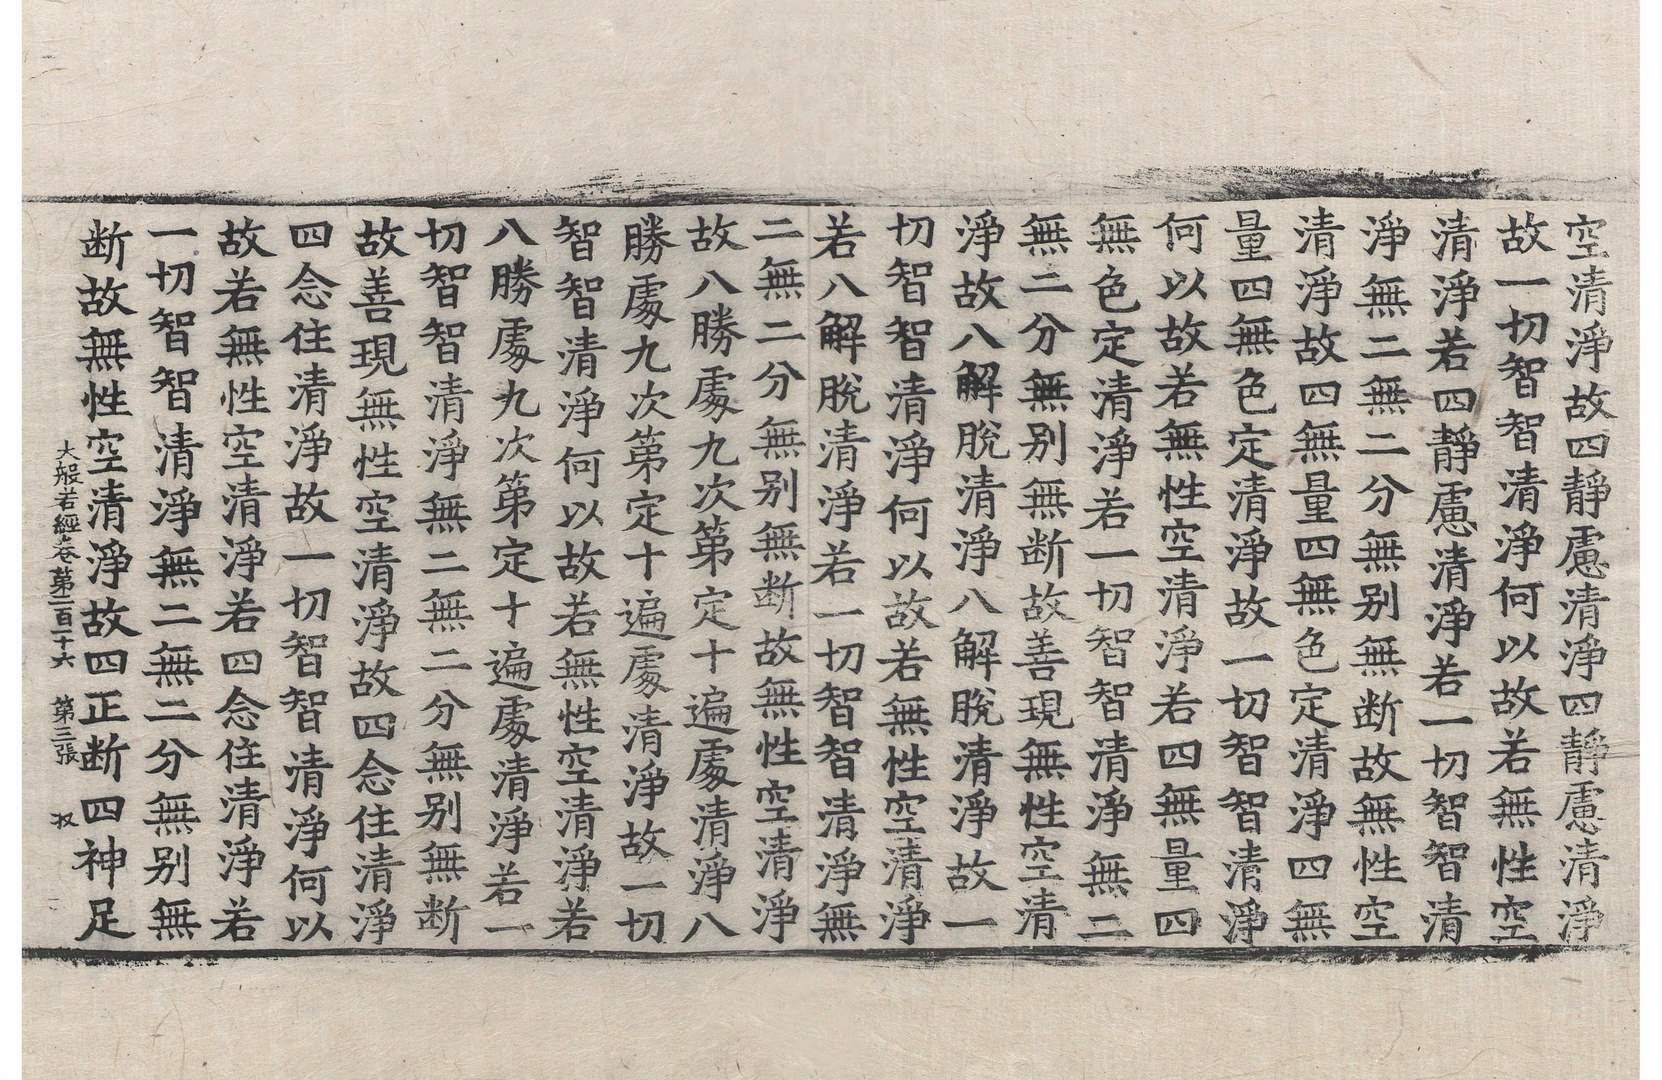 空清淨故四靜慮清淨四靜慮清淨
故一切智智清淨何以故若無性空
清淨若四靜慮清淨若一切智智清
淨無二無二分無别無断故無性空
清淨故四無量四無色定清淨四無
量四無色定清淨故一切智智清淨
何以故若無性空清淨若四無量四
無色定清淨若一切智智清淨無二
無二分無别無断故善現無性空清
淨故八解脫清淨八解脫清淨故一
切智智清淨何以故若無性空清淨
若八解脫清淨若一切智智清淨無
二無二分無别無断故無性空清淨
故八勝處九次第定十遍處清淨八
勝處九次第定十遍處清淨故一切
智智清淨何以故若無性空清淨若
八勝處九次第定十遍處清淨若一
切智智清淨無二無二分無别無断
故善現無性空清淨故四念住清淨
四念住清淨故一切智智清淨何以
故若無性空清淨若四念住清淨若
一切智智清淨無二無二分無别無
断故無性空清淨故四正断四神足
大般若經卷第二百一十六 第三張 収